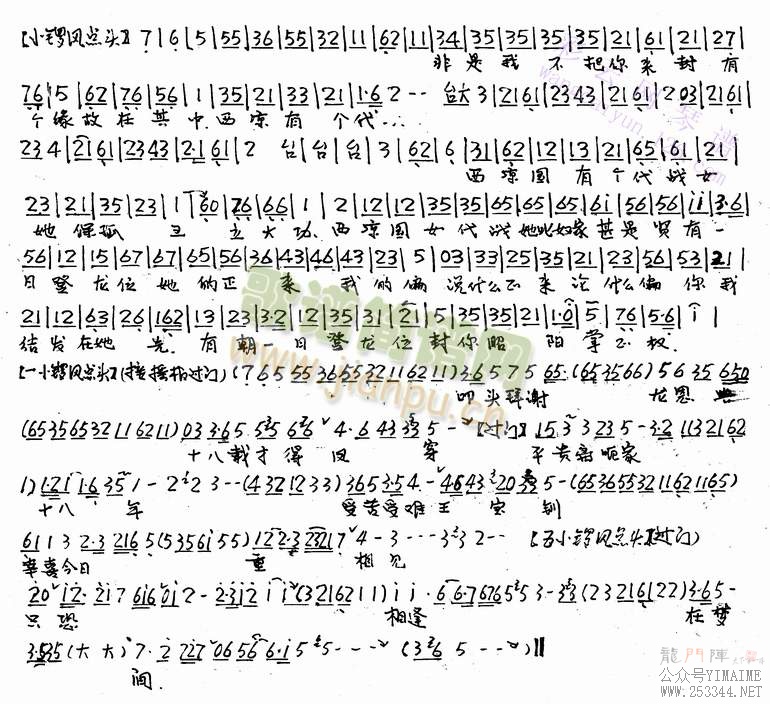 【小锣凤点头】 7 | 6 | 5 | 55 | 36 | 55 | 32 | 11 | 62 | 11 | 34 | 35 | 35 | 35 | 35 | 21 | 61 | 21 | 27 |
非是我 不把你来封有
76 | 5 | 62 | 76 | 56 | 1 | 35 | 21 | 33 | 21 | 1·6 2 -- 台大 3 | 2161 | 2343 | 2161 | 2 03 | 2161 |
个缘故在其中西凉有 个代...
23 4 | 2161 | 2343 | 2·161 | 2 台 | 台 | 台 | 3 | 62 | 6 | 31 | 62 | 12 | 13 | 21 | 65 | 61 | 21 |
西凉国 有个代战女
23 | 21 | 35 | 23 | 1 | 60 | 76 | 66 | 1 | 2 | 12 | 12 | 35 | 35 | 65 | 65 | 65 | 6i | 56 | 56 | ii | 3·6 |
她保孤 王 立大功.西凉国女代战她比奴家甚是贤有一
56 | 12 | 15 | 67 | 67 | 65 | 56 | 36 | 43 | 46 | 43 | 23 | 5 | 03 | 33 | 25 | 35 | 21 | 23 | 56 | 53 | 21 |
日登龙位她的正 来 我的偏 说什么正来论什么偏你我
21 | 12 | 63 | 26 | 162 | 13 | 23 | 3·2 | 12 | 35 | 31 | 21 | 5 | 35 | 35 | 21 | 1·0 | 5 | 76 | 5·6 | i |
结发在她 先.有朝一日登龙位封你昭 阳掌正权.
【一小锣凤点头】(接摇板过门) (7 6 5 55 36 55 32 11 62 11) 3·6 5 7 5 65· (65 35 66) 5 6 35 650
叩头拜谢 龙恩典
(65 35 65 32 11 62 11) 03 3·65 5 35 6 6 4·6 43 3 5 - - 【过门】 15 3 3 23 5 - 3·2 11 32 16 2
十八载才得凤 穿 平贵离咱家
1) 1·21 1·6 35 1 - 2 2 3 -- (4 32 12 33) 365 3·54 - 4643 20 3 5 - (65 36 55 32 11 62 11 65)
十八 年 受苦受难王 宝 钏
61 1 3 2·3 216 5 (5 35 6i 55) 12 2·3 2321 7 4 - 3 --- 3 3 2 -- 【五小锣凤点头】过门)
幸喜今日 重 相见
20 i2· 2i7 6i6 0i2 - 2·3i2 i i (3 21 62 11) i i · 6 6·7 676 5 5 3 - 3 3 (2 32 16 22) 3·65 -
只恐 相逢 在梦
3·535 (大 大) 7·2 7 27 06 56 6·i 5 5 5 - --- (3 6 5 ---) ‖
间.
歌谱简谱网
www.jianpu.cn
龍門陣
公众号YIMAIME
www.253344.NET